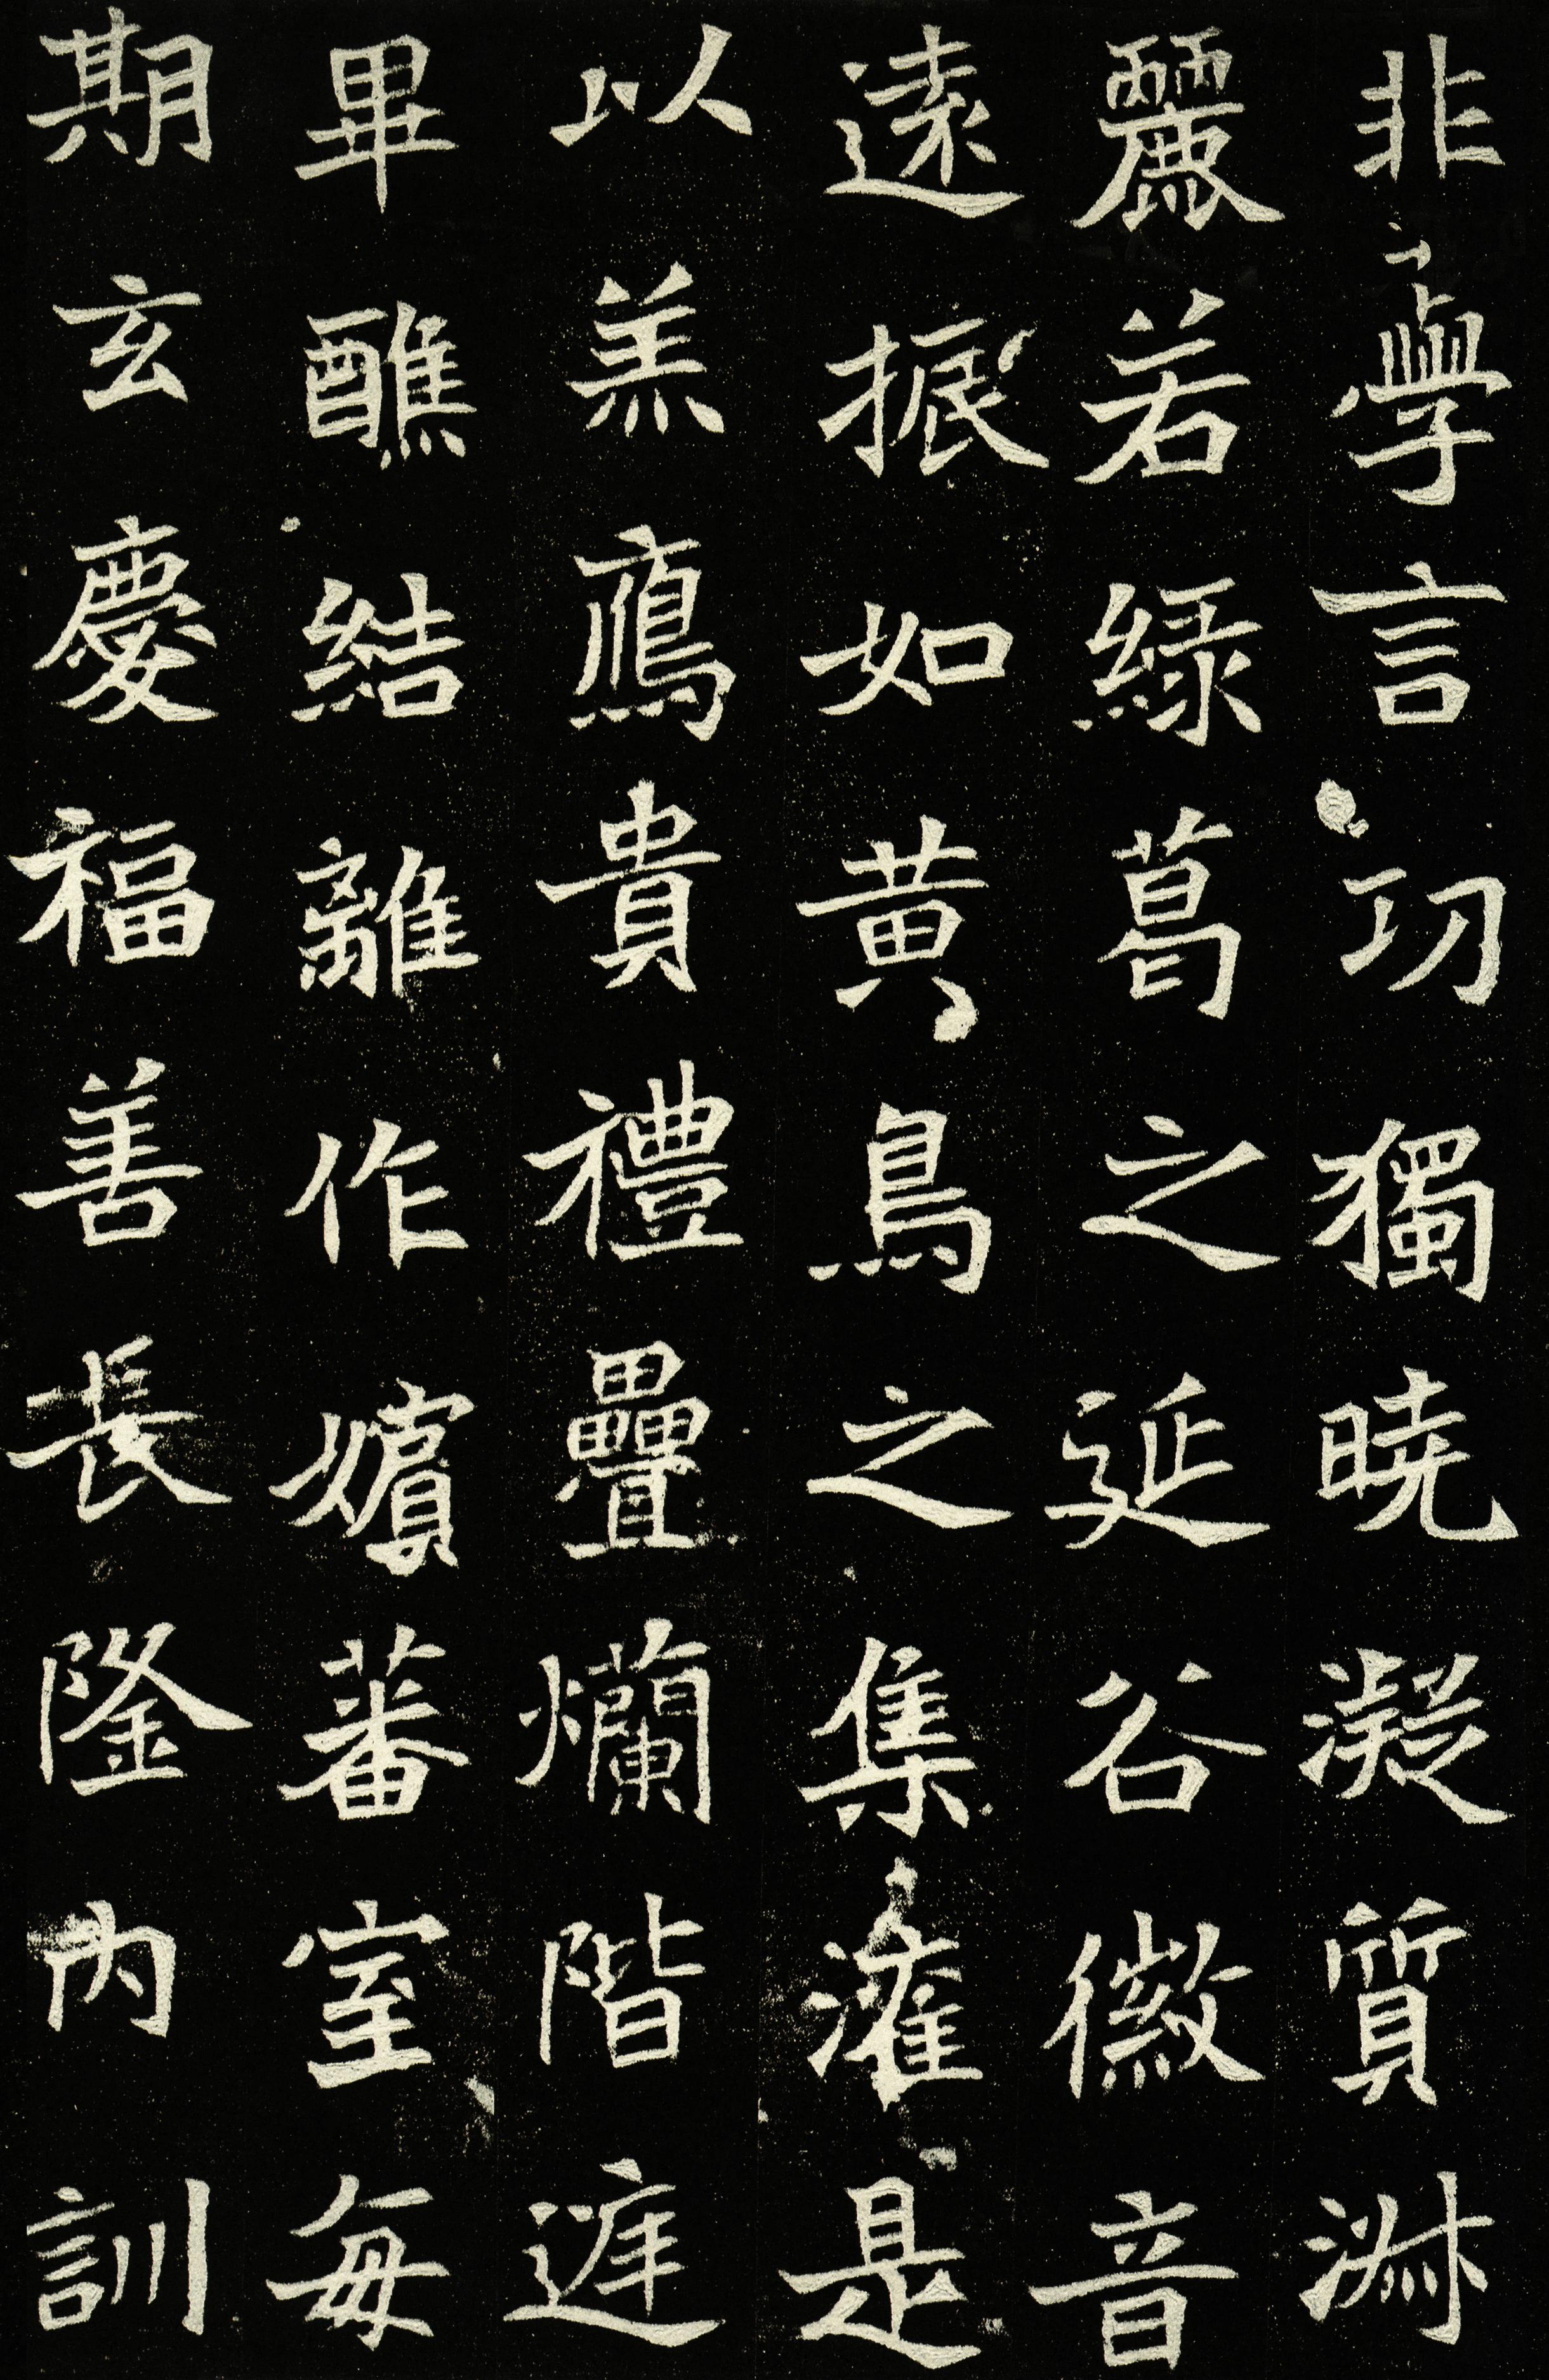 非學言功獨曉凝質淋
麗若綠葛之延谷徽音
遠振如黃鳥之集灌是
以羔鴈貴禮疊爛階遲
畢醮結離作嬪蕃室每
期玄慶福善長隆內訓